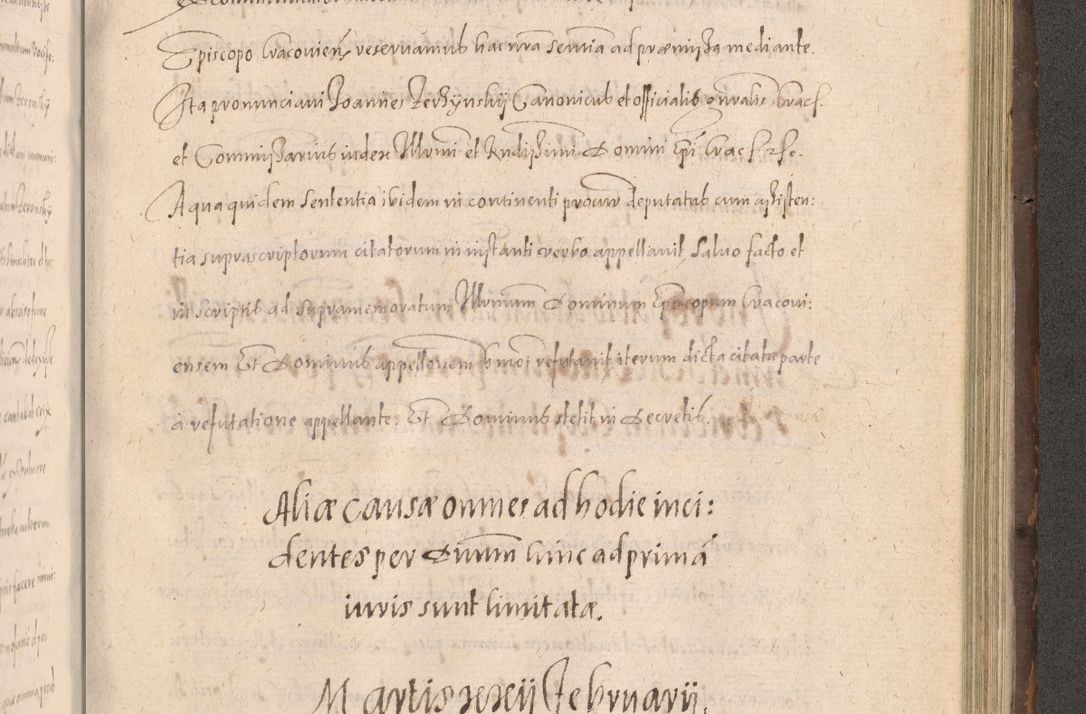 Episcopo Cracovien̄ reservamus hac nrā sentīa ad præmissa mediante.
Ita pronunciavi Joannes Zerzynskij Canonicus et officialis gn̄ralis Crac̄.
et Commissarius iudex Illrmi et Rndissimi Domini Ep̄i Crac̄ &c.
A qua quidem sententia ibidem in continenti procur̄ deputatus cum assisten:
tia suprascriptorum citatorum in instanti verbo appellavit, salvo facto et
in scriptis ad supramemoratum Illrmum Dominum Episcopum Cracovi:
ensem Et Dominus appellōnem hmōi refutavit iterum dicta citata parte
à refutatione appellante. Et Dominus stetit in Decretis.
Aliæ causæ omnes ad hodie inci:
dentes per Dnūm hinc ad primā
iuris sunt limitatæ.
Martis xxij Februarij.